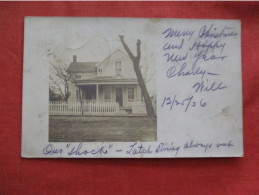 Merry Christmas
and Happy
New Year
Charley -
Will
12/25/06
Our "shack" - Latch string always out